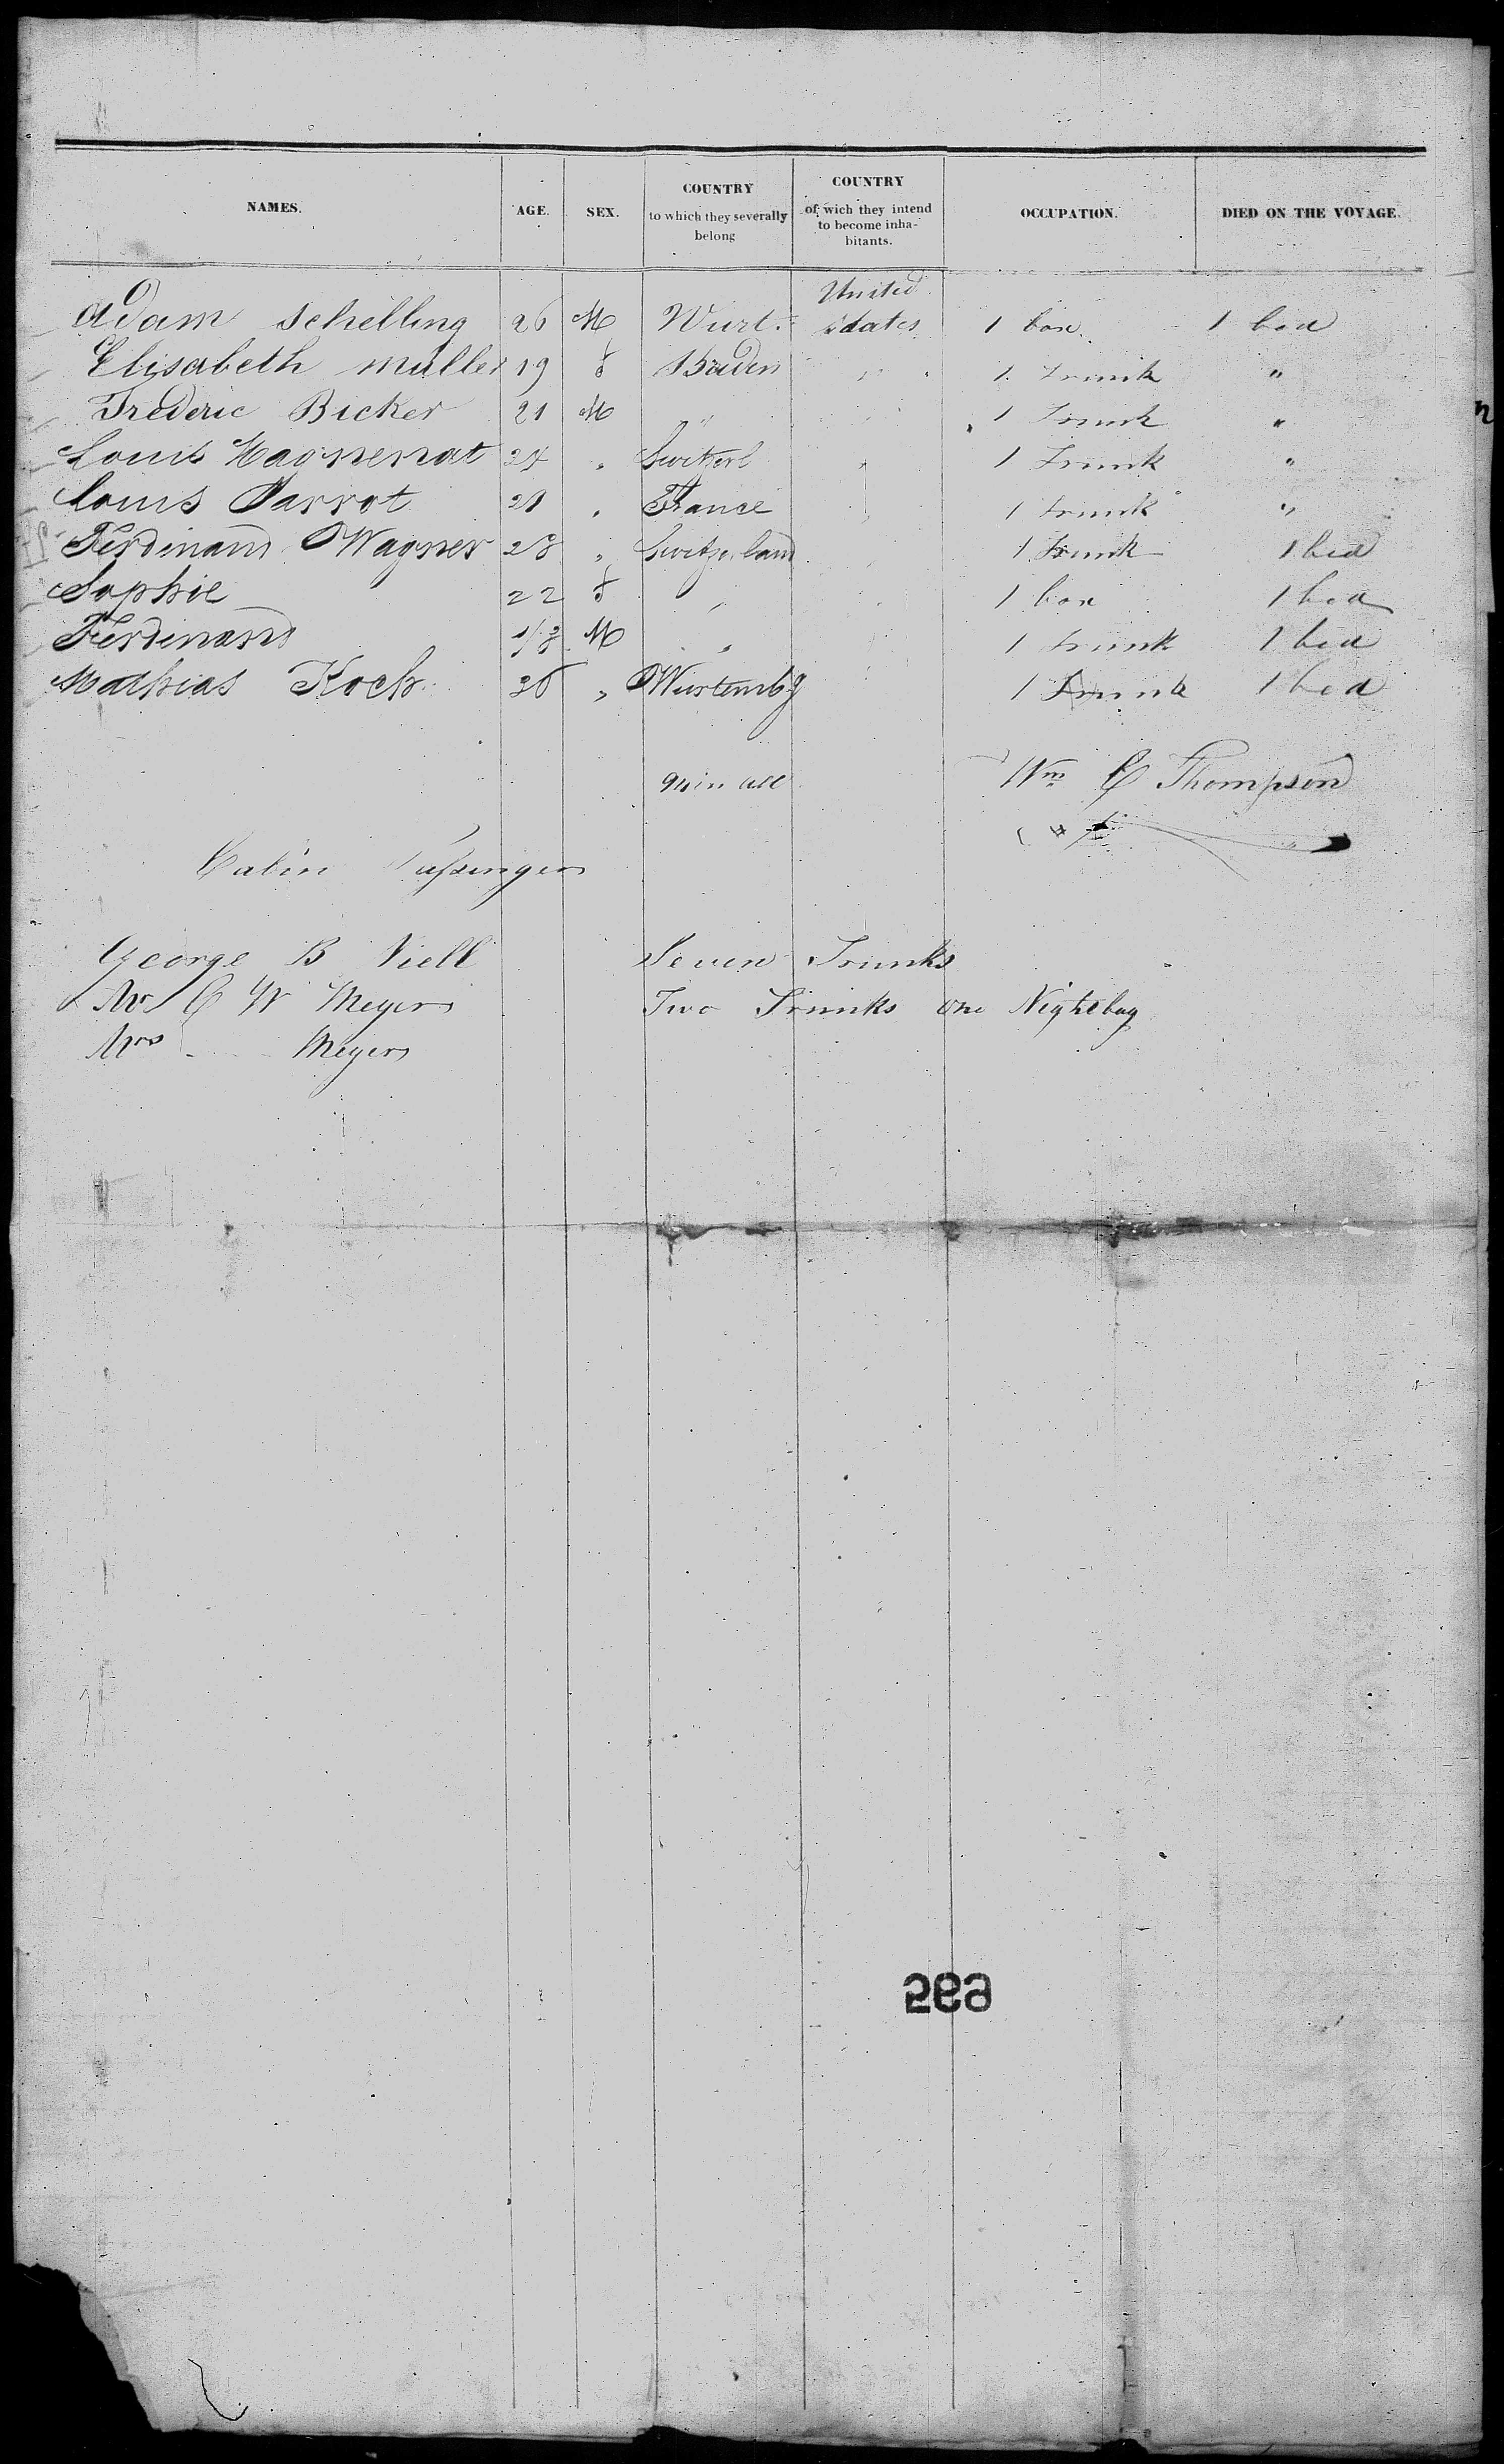 NAMES. AGE. SEX. COUNTRY to which they severally belong COUNTRY of wich they intend to become inhabitants. OCCUPATION. DIED ON THE VOYAGE.
United
Adam Schelling 26 M Wurt. States 1 box 1 bed
Elisabeth Muller 19 f Baden " " 1 Trunk "
Frederic Bicker 21 M " 1 Trunk "
Louis Magnenat 24 " Switzerl " 1 Trunk "
Louis Parrot 21 " France 1 trunk "
Ferdinand Wagner 28 " Switzerland 1 trunk 1 bed
Sophie 22 f " 1 box 1 bed
Ferdinand M " 1 trunk 1 bed
Mathias Koch 36 " Wurtembg 1 Trunk 1 bed
94 in all Wm C Thompson
Cabin Passengers
George B Viell Seven Trunks
Mr C W Meyers Two Trunks one Nightbag
Mrs Meyers